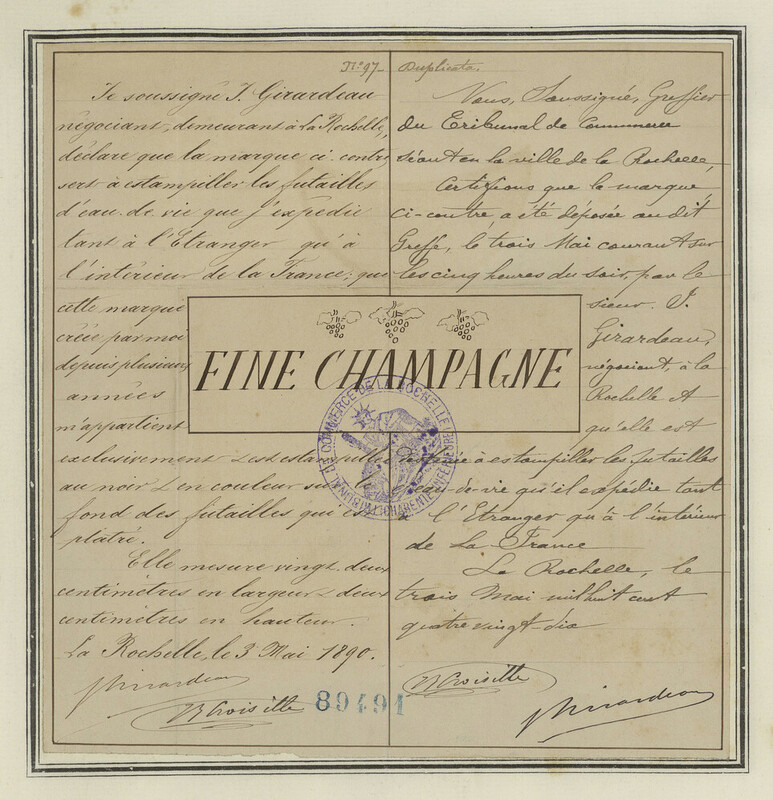 N° 97
Je soussigné J. Girardeau
négociant, demeurant à La Rochelle,
déclare que la marque ci contre
sert à estampiller les futailles
d'eau-de-vie que j'expédie
tant à l'Étranger qu'à
l'intérieur de la France; que
cette marque
créée par moi
depuis plusieurs
années
m'appartient
exclusivement est estampillée
au noir, en couleur sur le
fond des futailles qui est
platré.
Elle mesure vingt-deux
centimètres en largeur deux
centimètres en hauteur.
La Rochelle, le 3 Mai 1890.
JGirardeau
Croisille
FINE CHAMPAGNE
TRIBUNAL DE COMMERCE DE LA ROCHELLE (CHARENTE INFERIEURE)
Duplicata.
Nous, Soussigné, Greffier
du Tribunal de Commerce
séant en la ville de la Rochelle,
Certifions que la marque
ci-contre a été déposée au dit
Greffe, le trois Mai courant sur
les cinq heures du soir, par le
sieur J.
Girardeau,
négociant, à la
Rochelle et
qu'elle est
destinée à estampiller les futailles
d'eau-de-vie qu'il expédie tant
à l'Etranger qu'à l'intérieur
de la France
La Rochelle, le
trois Mai mil huit cent
quatre vingt-dix
Croisille
JGirardeau
89491